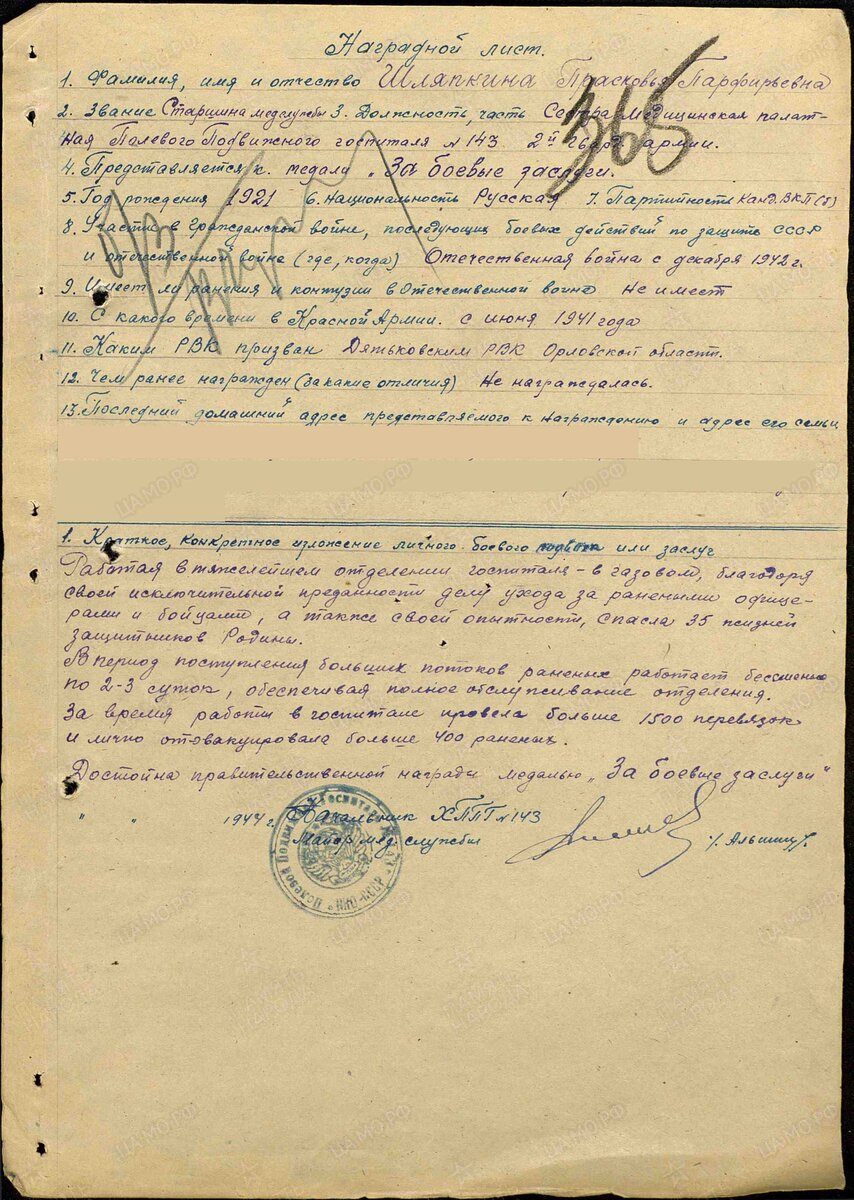 Наградной лист.
1. Фамилия, имя и отчество Шляпкина Прасковья Парфирьевна
2. Звание Старшина медслужбы 3. Должность, часть Сестра Медицинская палат-
ная Полевого Подвижного госпиталя №143 2й гвард. армии.
4. Представляется к. медали „За боевые заслуги.
5. Год рождения 1921 6. Национальность Русская 7. Партийность Канд. ВКП(б)
8. Участие в гражданской войне, последующих боевых действий по защите СССР
и отечественной войне (где, когда) Отечественная война с декабря 1942 г.
9. Имеет ли ранения и контузии в отечественной войне Не имеет
10. С какого времени в Красной Армии. с июня 1941 года
11. Каким РВК призван Дятьковским РВК Орловской области.
12. Чем ранее награжден (за какие отличия) Не награждалась.
13. Последний домашний адрес представляемого к награждению и адрес его семьи
1. Краткое, конкретное изложение личного боевого подвига или заслуг
Работая в тяжелейшем отделении госпиталя - в газовом, благодоря
своей исключительной преданности делу ухода за ранеными офице-
рами и бойцами, а также своей опытности, спасла 35 жизней
защитников Родины.
В период поступления больших потоков раненых работает бессменно
по 2-3 суток, обеспечивая полное обслуживание отделения.
За время работы в госпитале провела больше 1500 перевязок
и лично отэвакуировала больше 400 раненых.
Достойна правительственной награды медалью „За боевые заслуги"
" " 1944 г. Начальник ХППГ №143
Майор мед. службы
368